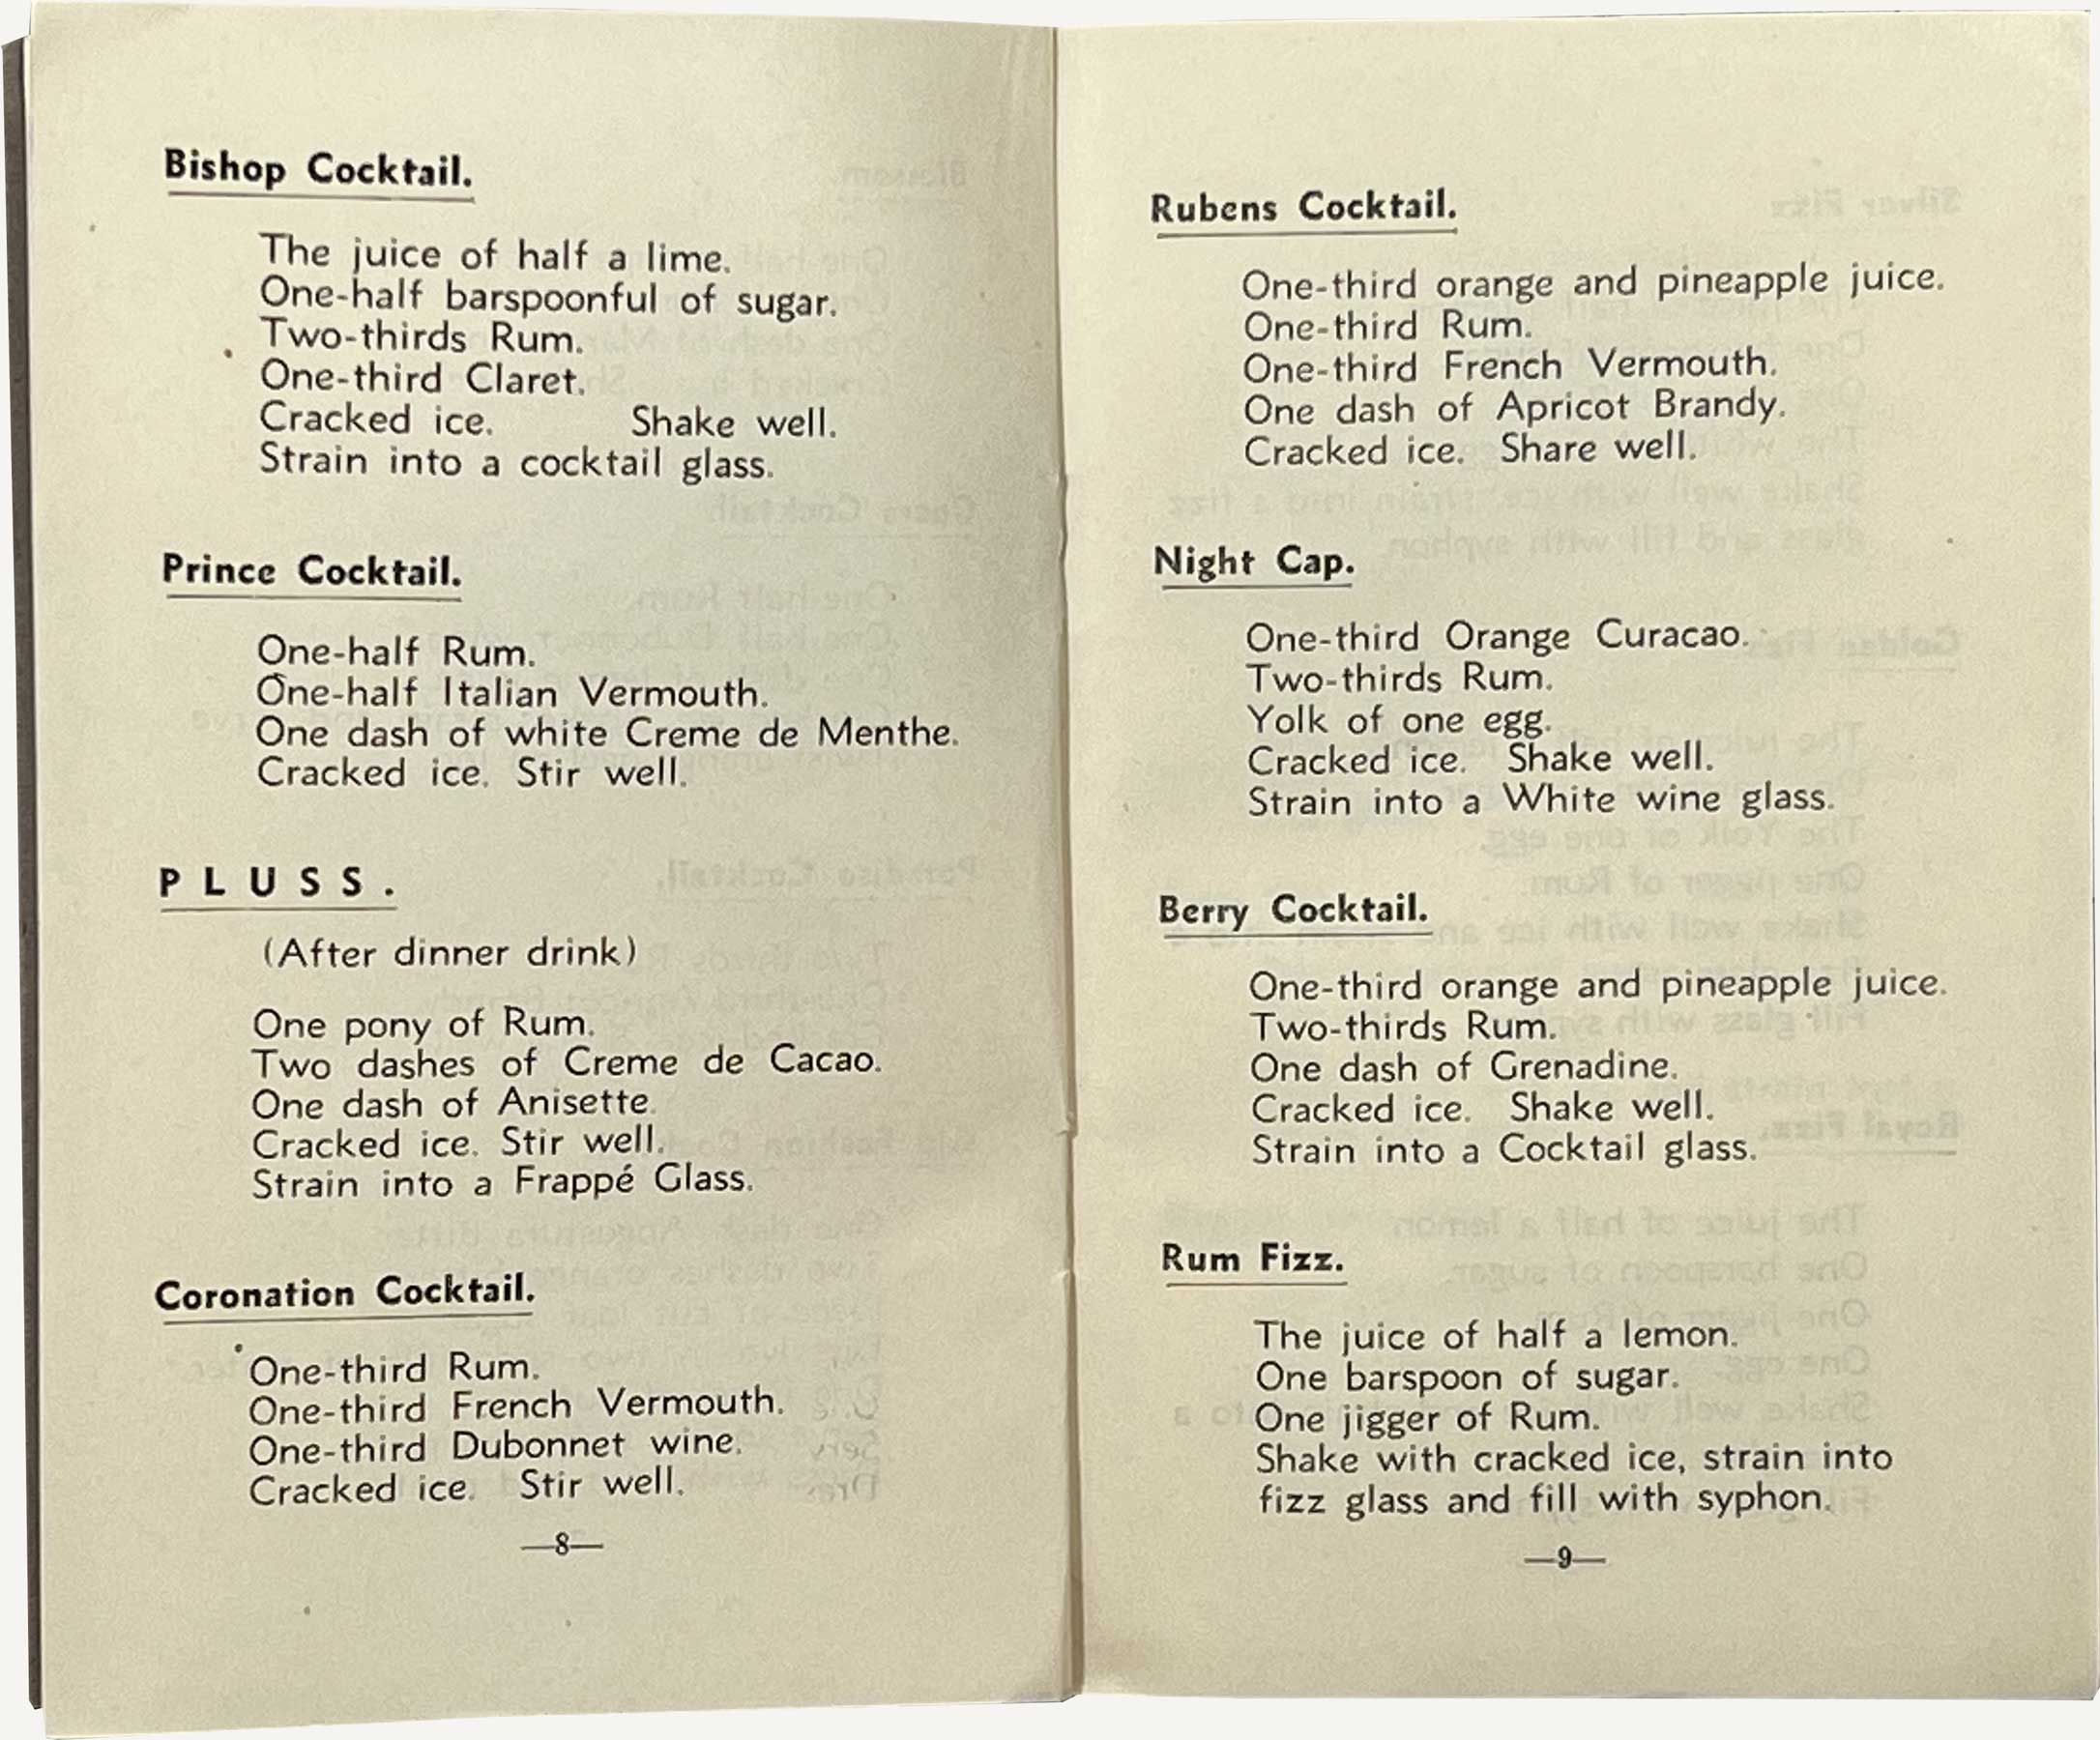 Bishop Cocktail.
The juice of half a lime.
One-half barspoonful of sugar.
Two-thirds Rum.
One-third Claret.
Cracked ice. Shake well.
Strain into a cocktail glass.
Prince Cocktail.
One-half Rum.
One-half Italian Vermouth.
One dash of white Creme de Menthe.
Cracked ice. Stir well.
PLUSS.
(After dinner drink)
One pony of Rum.
Two dashes of Creme de Cacao.
One dash of Anisette.
Cracked ice. Stir well.
Strain into a Frappé Glass.
Coronation Cocktail.
One-third Rum.
One-third French Vermouth.
One-third Dubonnet wine.
Cracked ice. Stir well.
—8—
Rubens Cocktail.
One-third orange and pineapple juice.
One-third Rum.
One-third French Vermouth.
One dash of Apricot Brandy.
Cracked ice. Share well.
Night Cap.
One-third Orange Curacao.
Two-thirds Rum.
Yolk of one egg.
Cracked ice. Shake well.
Strain into a White wine glass.
Berry Cocktail.
One-third orange and pineapple juice.
Two-thirds Rum.
One dash of Grenadine.
Cracked ice. Shake well.
Strain into a Cocktail glass.
Rum Fizz.
The juice of half a lemon.
One barspoon of sugar.
One jigger of Rum.
Shake with cracked ice, strain into
fizz glass and fill with syphon.
—9—